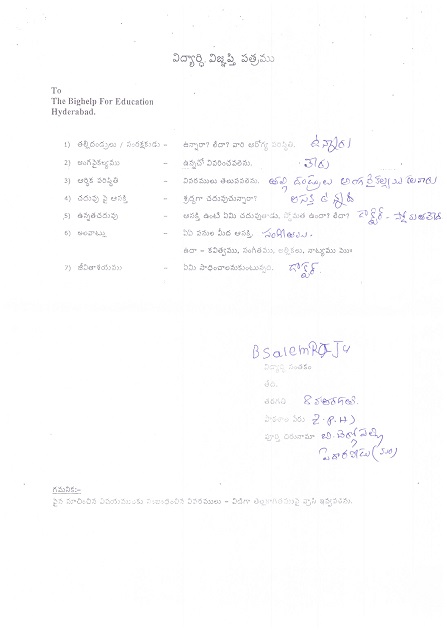 విద్యార్థి విజ్ఞప్తి పత్రము
To
The Bighelp For Education
Hyderabad.
1) తల్లిదండ్రులు / సంరక్షకుడు - ఉన్నారా? లేదా? వారి ఆరోగ్య పరిస్థితి. ఉన్నారు
2) అంగవైకల్యము - ఉన్నచో వివరించవలెను. లేదు
3) ఆర్థిక పరిస్థితి - వివరములు తెలుపవలెను. తల్లి దండ్రులు అంగవైకల్యము
4) చదువు పై ఆసక్తి - శ్రద్ధగా చదువుచున్నారా? ఆసక్తి ఉన్నది
5) ఉన్నతచదువు - ఆసక్తి ఉంటే ఏమి చదువుతాడు, స్తోమత ఉందా? లేదా? డాక్టర్ -
6) అలవాట్లు - ఏఏ పనుల మీద ఆసక్తి. సంగీతము.
ఉదా - కవిత్వము, సంగీతము, అల్లికలు, నాట్యము ||మొ||
7) జీవితాశయము - ఏమి సాధించాలనుకుంటున్నది. డాక్టర్.
B Salem RaJu
విద్యార్థి సంతకం
పేరు
తరగతి
పాఠశాల పేరు Z.P.H)
పూర్తి చిరునామా బి.
(మం)
గమనిక:-
పైన సూచించిన విషయములకు సంబంధించిన వివరములు - విడిగా తెల్లకాగితముపై వ్రాసి ఇవ్వవలెను.